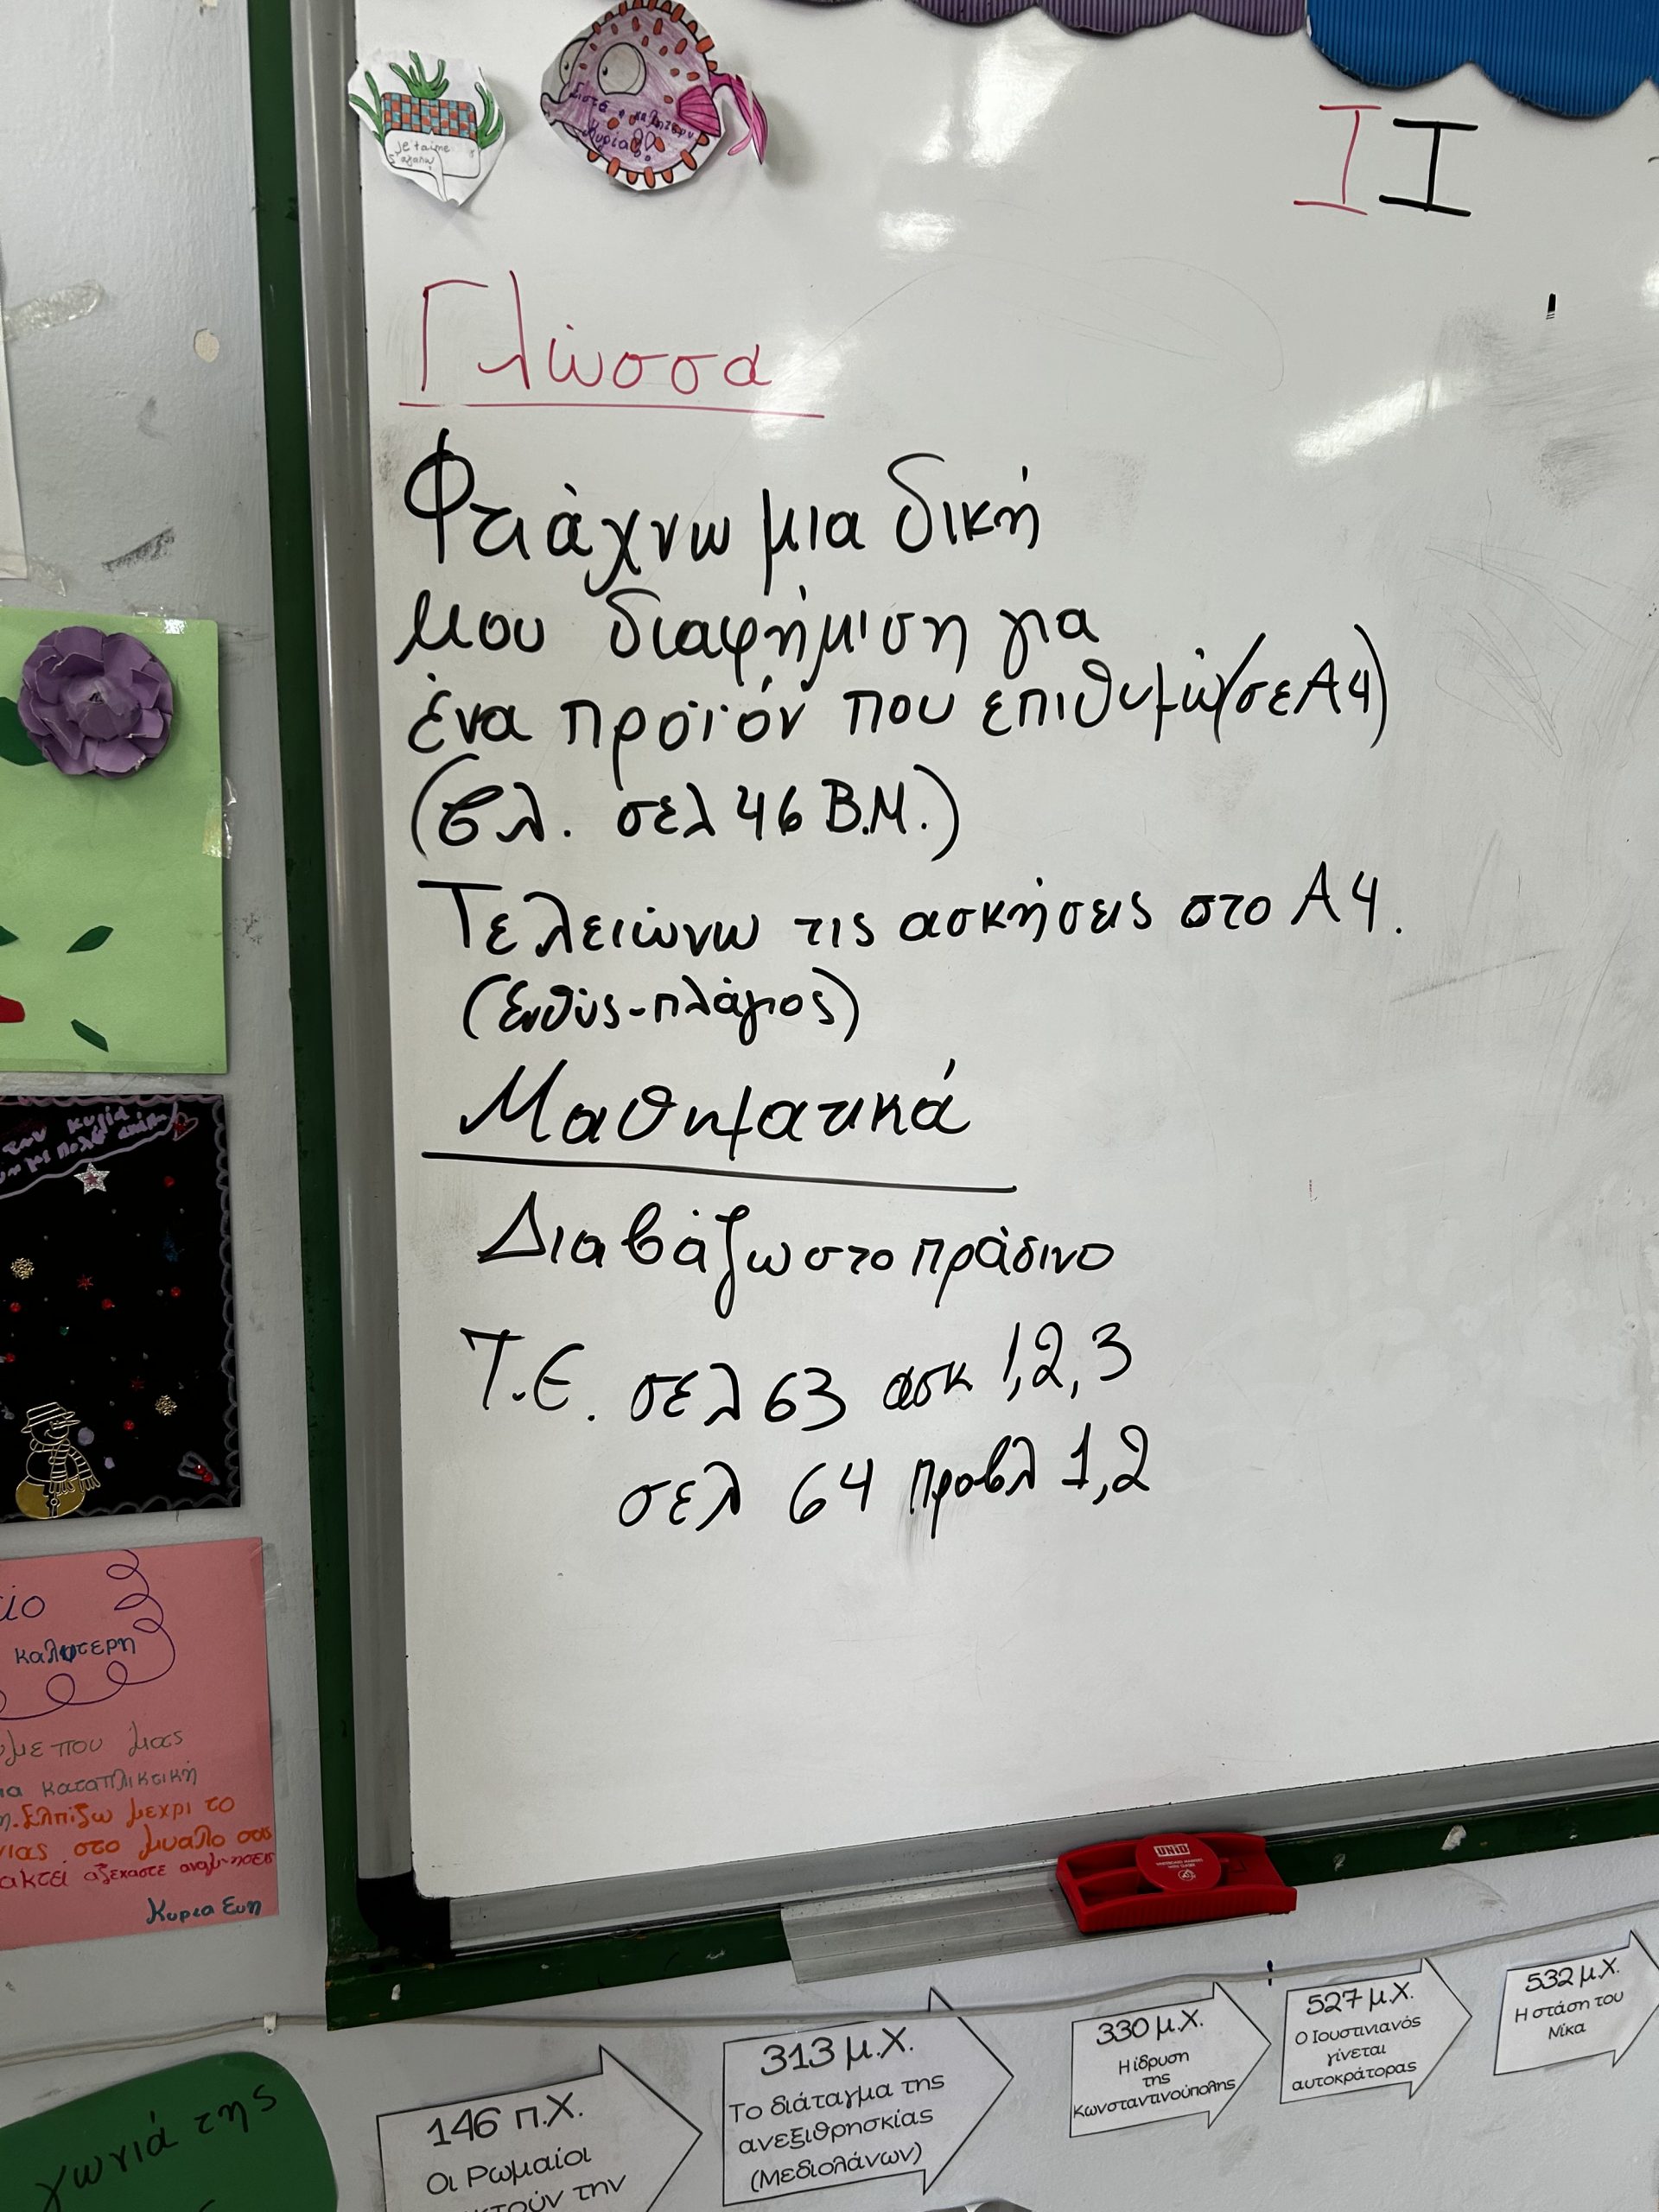 je taime
σ'αγαπώ
Είστε η καλύτερη
Κυρία!
I I
Γλώσσα
Φτιάχνω μια δική
μου διαφήμιση για
ένα προϊόν που επιθυμώ (σε Α4)
(βλ. σελ 46 Β.Μ.)
Τελειώνω τις ασκήσεις στο Α4.
(Ευθύς-πλάγιος)
Μαθηματικά
Διαβάζω στο πράσινο
Τ.Ε. σελ 63 ασκ 1,2,3
σελ 64 προβλ 1,2
κυρία
καλυτερη
που μας
καταπλικτική
Ελπίζω μεχρι το
στο μυαλο σας
αξεχαστε αναμνησεις
Κυρια Ευη
UNIO
γωνιά της
146 π.Χ.
Οι Ρωμαίοι
την
313 μ.Χ.
Το διάταγμα της
ανεξιθρησκίας
(Μεδιολάνων)
330 μ.Χ.
Η ίδρυση
της
Κωνσταντινούπολης
527 μ.Χ.
Ο Ιουστινιανός
γίνεται
αυτοκράτορας
532 μ.Χ.
Η στάση του
Νίκα